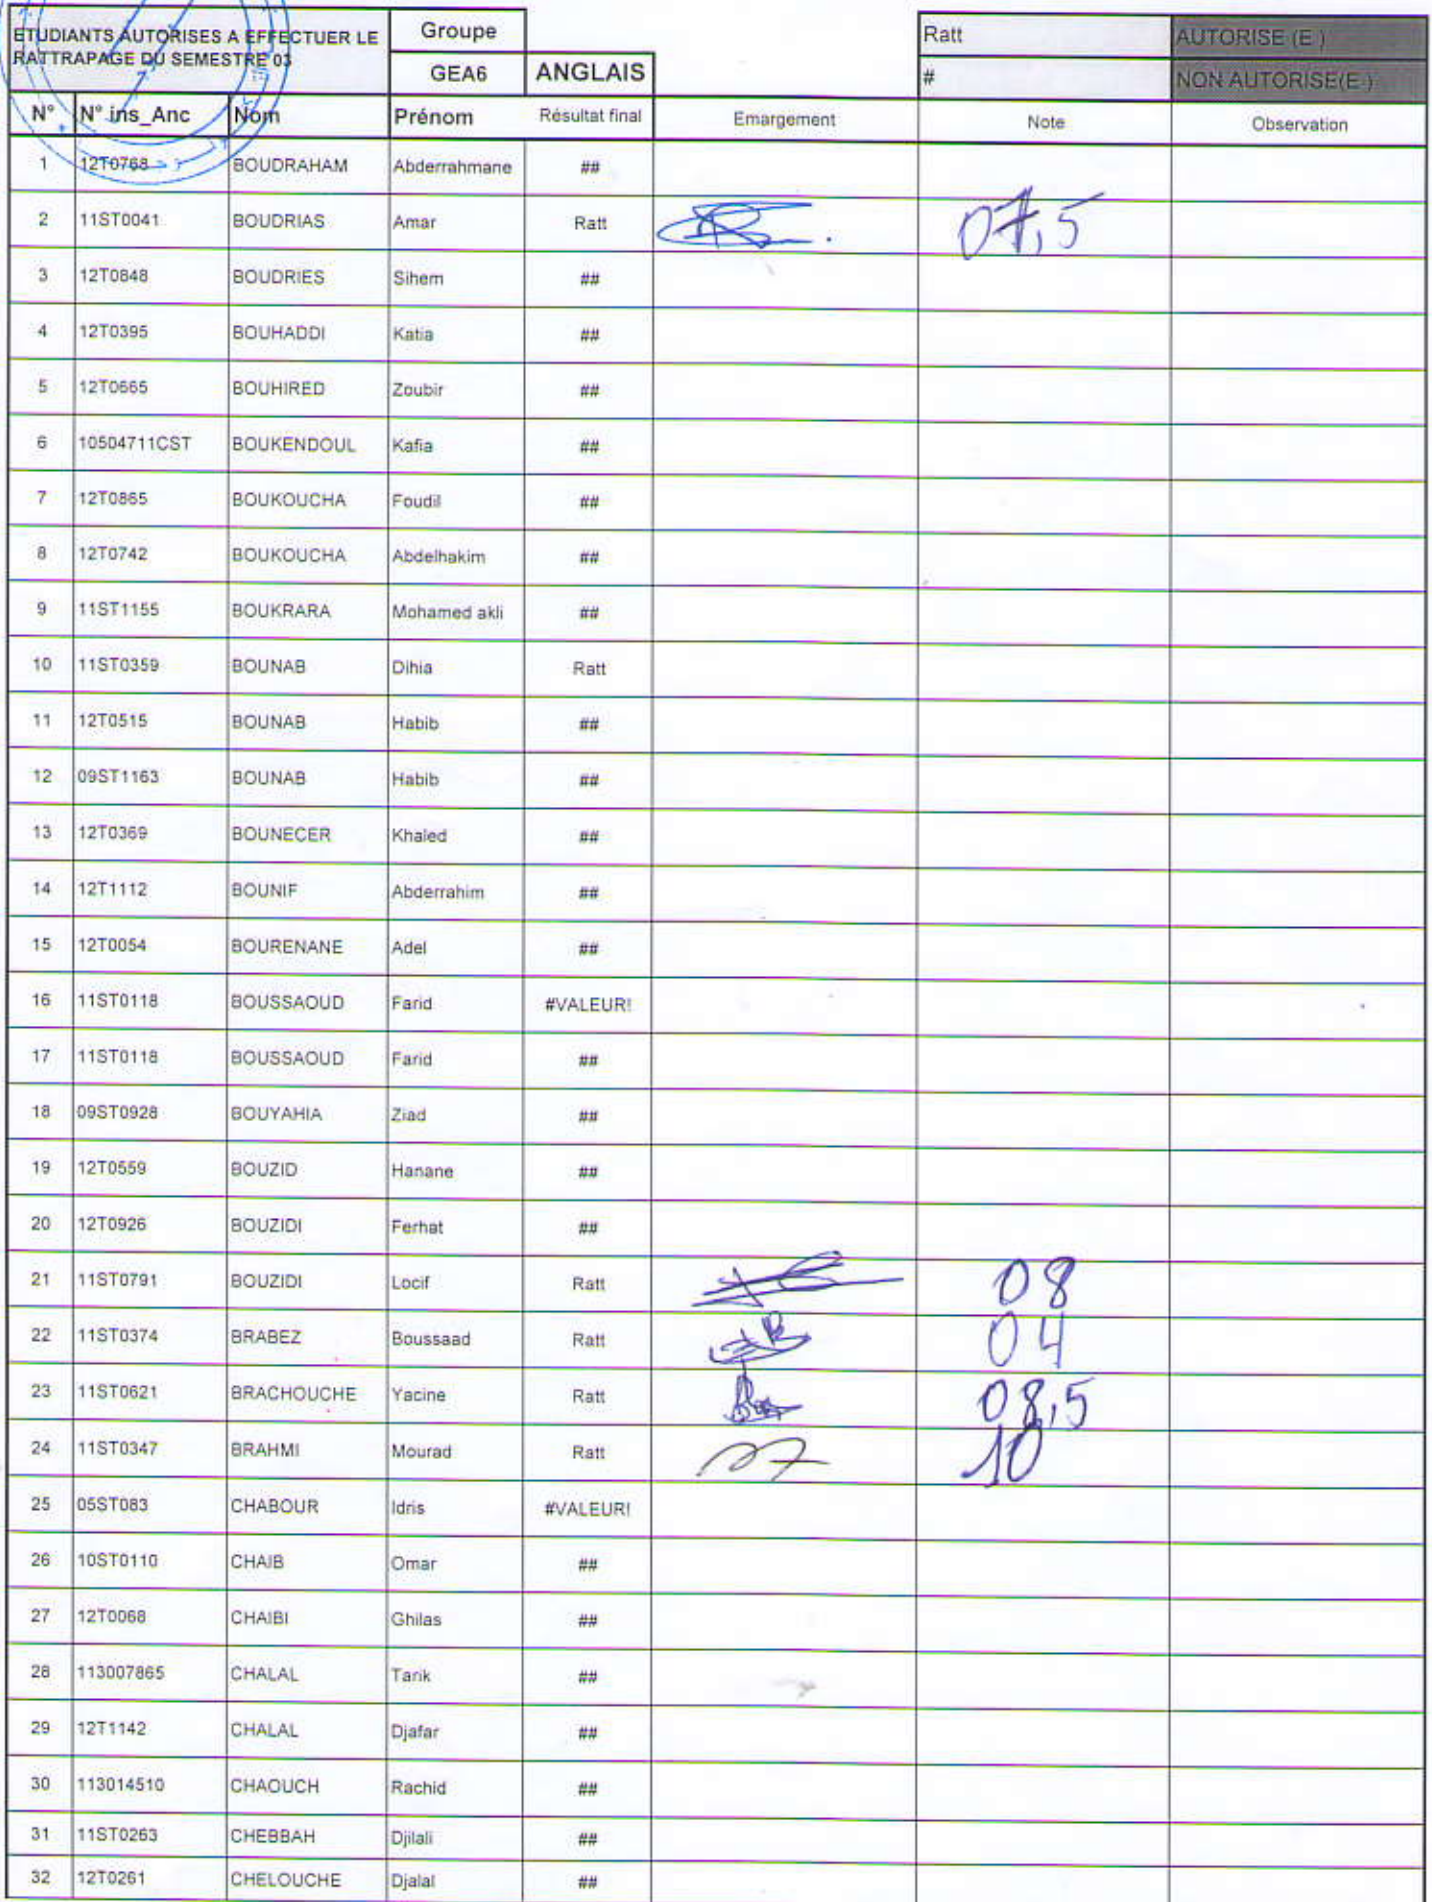 ETUDIANTS AUTORISES A EFFECTUER LE RATTRAPAGE DU SEMESTRE 03
Groupe
GEA6 ANGLAIS
Ratt AUTORISE (E )
# NON AUTORISE(E )
N° N° ins_Anc Nom Prénom Résultat final Emargement Note Observation
1 12T0768 BOUDRAHAM Abderrahmane ##
2 11ST0041 BOUDRIAS Amar Ratt 07,5
3 12T0848 BOUDRIES Sihem ##
4 12T0395 BOUHADDI Katia ##
5 12T0665 BOUHIRED Zoubir ##
6 10504711CST BOUKENDOUL Kafia ##
7 12T0865 BOUKOUCHA Foudil ##
8 12T0742 BOUKOUCHA Abdelhakim ##
9 11ST1155 BOUKRARA Mohamed akli ##
10 11ST0359 BOUNAB Dihia Ratt
11 12T0515 BOUNAB Habib ##
12 09ST1163 BOUNAB Habib ##
13 12T0369 BOUNECER Khaled ##
14 12T1112 BOUNIF Abderrahim ##
15 12T0054 BOURENANE Adel ##
16 11ST0118 BOUSSAOUD Farid #VALEUR!
17 11ST0118 BOUSSAOUD Farid ##
18 09ST0928 BOUYAHIA Ziad ##
19 12T0559 BOUZID Hanane ##
20 12T0926 BOUZIDI Ferhat ##
21 11ST0791 BOUZIDI Locif Ratt 08
22 11ST0374 BRABEZ Boussaad Ratt 04
23 11ST0621 BRACHOUCHE Yacine Ratt 08,5
24 11ST0347 BRAHMI Mourad Ratt 10
25 05ST083 CHABOUR Idris #VALEUR!
26 10ST0110 CHAIB Omar ##
27 12T0068 CHAIBI Ghilas ##
28 113007865 CHALAL Tarik ##
29 12T1142 CHALAL Djafar ##
30 113014510 CHAOUCH Rachid ##
31 11ST0263 CHEBBAH Djilali ##
32 12T0261 CHELOUCHE Djalal ##